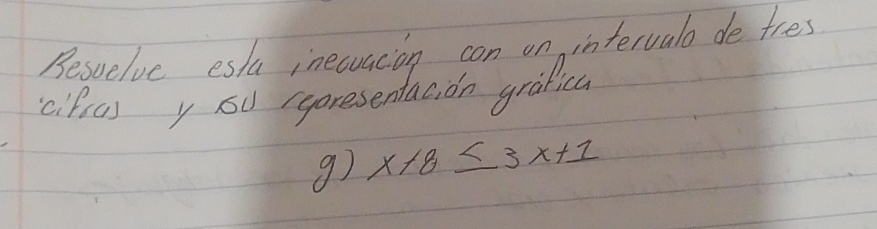 Resuelve esta inecuación con un intervalo de tres
cifras y su representación gráfica
g) x+8 ≤ 3x+1